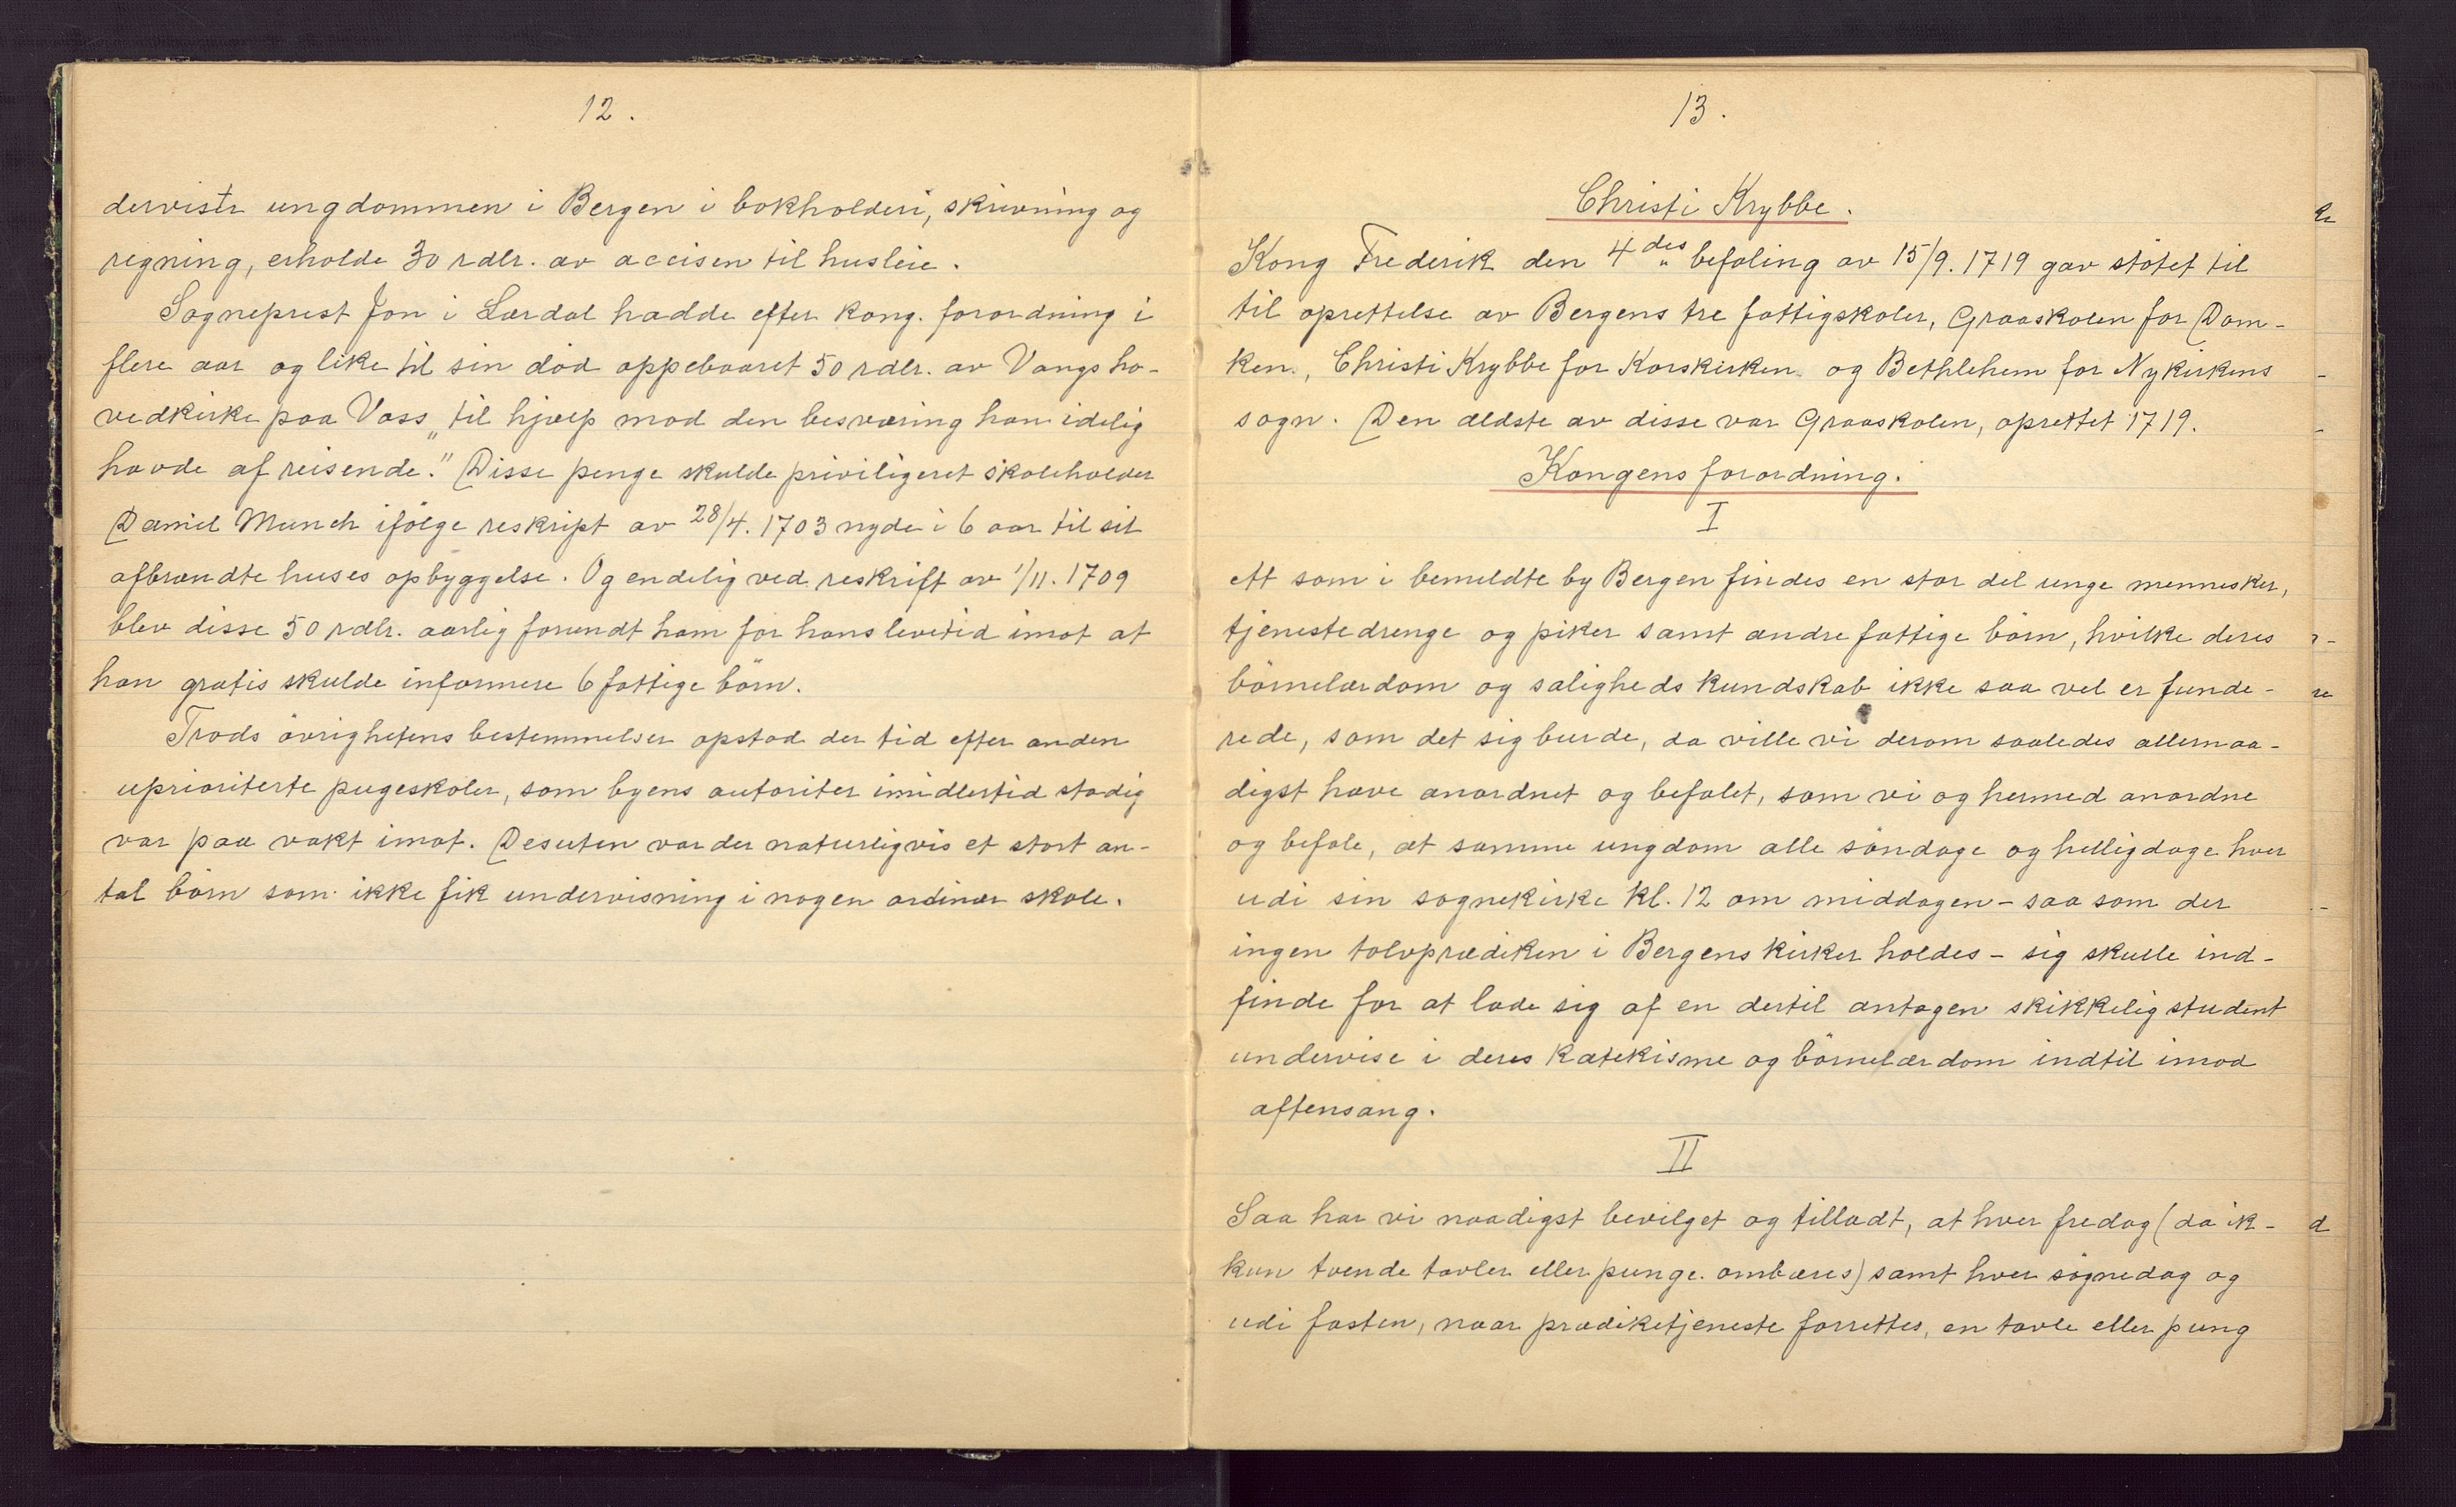 12.
derviste ungdommen i Bergen i bokholderi, skrivning og
regning, erholde 30 rdlr. av accisen til husleie.
Sogneprest Jon i Lærdal hadde efter kong. forordning i
flere aar og like til sin död oppebaaret 50 rdlr. av Vangs ho-
vedkirke paa Voss „til hjælp mod den besværing han idelig
havde af reisende." Disse penge skulde priviligeret skoleholder
Daniel Munch ifölge reskript av 28/4. 1703 nyde i 6 aar til sit
afbrændte huses opbyggelse. Og endelig ved reskrift av 1/11. 1709
blev disse 50 rdlr. aarlig forundt ham for hans levetid imot at
han gratis skulde informere 6 fattige börn.
Trods övrighetens bestemmelser opstod der tid efter anden
uprioriterte pugeskoler, som byens autoriter imidlertid stadig
var paa vakt imot. Desuten var der naturligvis et stort an-
tal börn som ikke fik undervisning i nogen ordinær skole.
13.
Christi Krybbe.
Kong Frederik den 4des befaling av 15/9. 1719 gav stötet til
til oprettelse av Bergens tre fattigskoler, Graaskolen for Dom-
ken., Christi Krybbe for Korskirken og Bethlehem for Nykirkens
sogn. Den ældste av disse var Graaskolen, oprettet 1719.
Kongens forordning.
I
ett som i bemeldte by Bergen findes en stor del unge mennesker,
tjenestedrenge og piker samt andre fattige börn, hvilke deres
börnelærdom og saligheds kundskab ikke saa vel er funde-
rede, som det sig burde, da ville vi derom saaledes allernaa-
digst have anordnet og befalet, som vi og hermed anordne
og befale, at samme ungdom alle söndage og helligdage hver
udi sin sognekirke kl. 12 om middagen - saa som der
ingen tolvprædiken i Bergens kirker holdes - sig skulle ind-
finde for at lade sig af en dertil antagen skikkelig student
undervise i deres katekisme og börnelærdom indtil imod
aftensang.
II
Saa har vi naadigst bevilget og tilladt, at hver fredag (da ik-
kun tvende tavler eller punge ombæres) samt hver sögnedag og
udi fasten, naar prædiketjeneste forrettes, en tavle eller pung